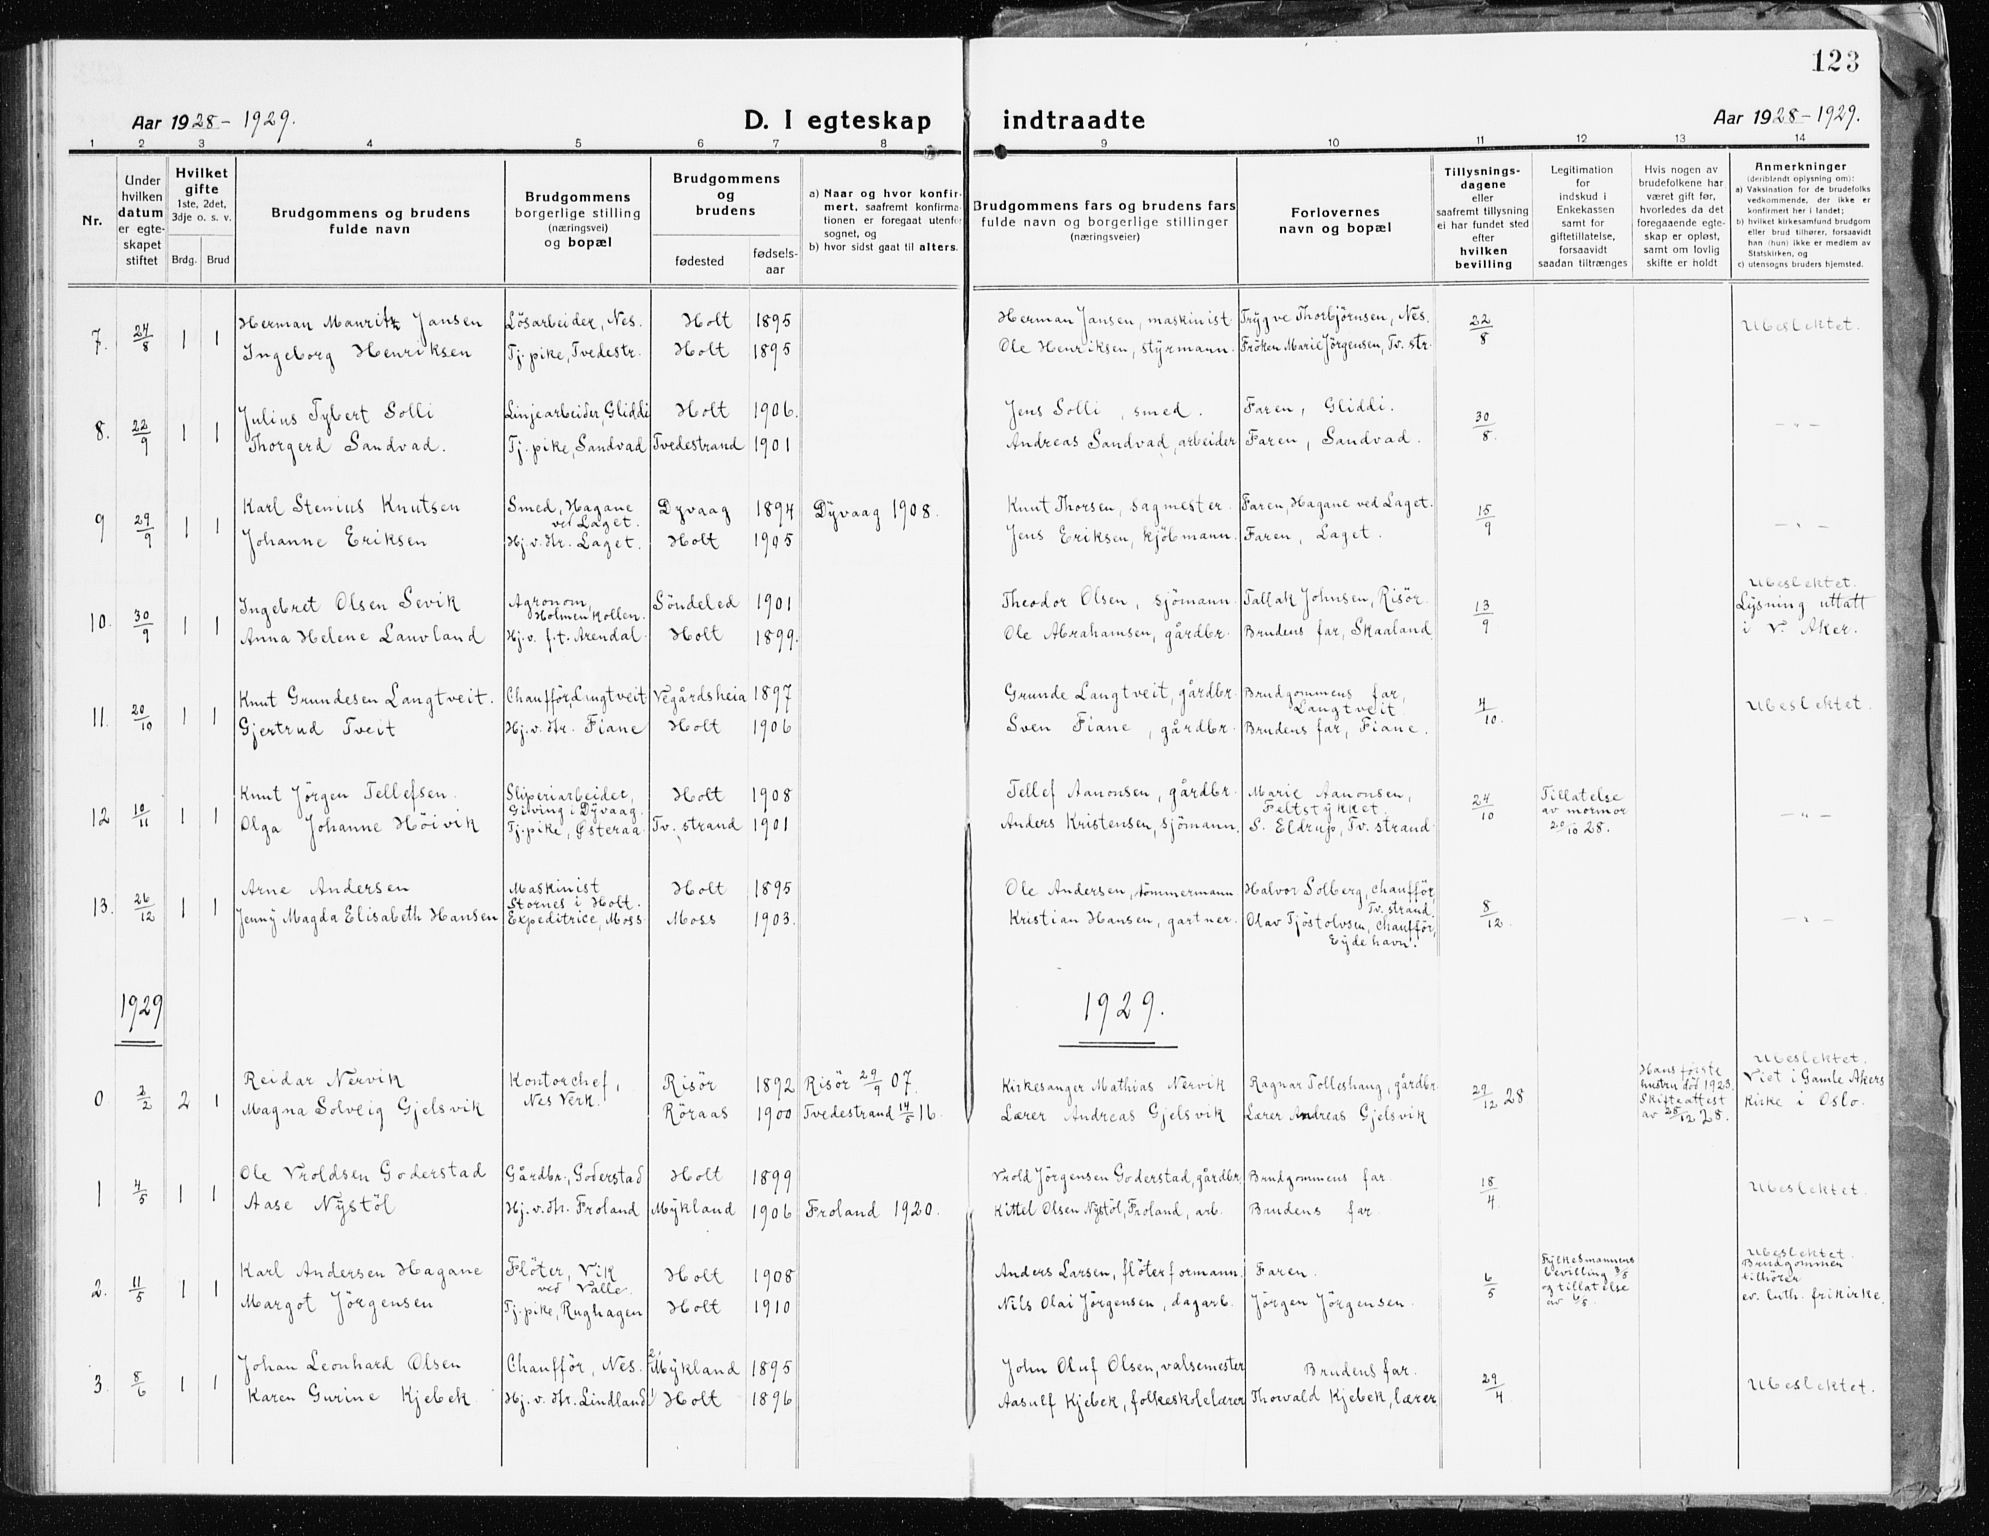 123
Aar 1928-1929.
D. I egteskap indtraadte
Aar 1928-1929.
1 2 3 4 5 6 7 8 9 10 11 12 13 14
Nr.
Under
hvilken
datum
er egte-
skapet
stiftet
Hvilket
gifte
1ste, 2det,
3dje o. s. v.
Brdg. Brud
Brudgommens og brudens
fulde navn
Brudgommens
borgerlige stilling
(næringsvei)
og bopæl
Brudgommens
og
brudens
fødested
fødsels-
aar
a) Naar og hvor konfir-
mert, saafremt konfirma-
tionen er foregaat utenfor
sognet, og
b) hvor sidst gaat til alters.
Brudgommens fars og brudens fars
fulde navn og borgerlige stillinger
(næringsveier)
Forlovernes
navn og bopæl
Tillysnings-
dagene
eller
saafremt tillysning
ei har fundet sted
efter
hvilken
bevilling
Legitimation
for
indskud i
Enkekassen
samt for
giftetillatelse,
forsaavidt
saadan tiltrænges
Hvis nogen av
brudefolkene har
været gift før,
hvorledes da det
foregaaende egte-
skap er opløst,
samt om lovlig
skifte er holdt
Anmerkninger
(deriblandt oplysning om):
a) Vaksination for de brudefolks
vedkommende, der ikke er
konfirmert her i landet;
b) hvilket kirkesamfund brudgom
eller brud tilhører, forsaavidt
han (hun) ikke er medlem av
Statskirken, og
c) utensogns bruders hjemsted.
7. 24/8 1 1 Herman Mauritz Jansen Løsarbeider, Nes. Holt 1895 Herman Jansen, maskinist Trygve Thorbjörnsen, Nes. 22/8 Ubeslektet.
Ingeborg Henriksen Tj. pike, Tvedestr. Holt 1895 Ole Henriksen, styrmann. Fröken Marie Jörgensen, Tv. str.
8. 22/9 1 1 Julius Tybert Solli Linjearbeider, Gliddi Holt 1906. Jens Solli, smed. Faren, Gliddi. 30/8. -"-
Thorgerd Sandvad. Tj. pike, Sandvad Tvedestrand 1901 Andreas Sandvad, arbeider Faren, Sandvad.
9 29/9 1 1 Karl Stenius Knutsen Smed, Hagane
ved Laget. Dyvaag 1894 Dyvaag 1908. Knut Thorsen, sagmester. Faren, Hagane ved Laget. 15/9 -"-
Johanne Eriksen Hj. v. hr. Laget. Holt 1905 Jens Eriksen, kjöbmann. Faren, Laget.
10. 30/9 1 1 Ingebret Olsen Sevik Agronom,
Holmenkollen. Söndeled 1901 Theodor Olsen, sjömann. Tallak Johnsen, Risör. 13/9 Ubeslektet.
Lysning uttatt
i V. Aker.
Anna Helene Lauvland Hj. v. f. t. Arendal. Holt 1899. Ole Abrahamsen, gårdbr. Brudens far, Skaaland.
11. 20/10 1 1 Knut Grundesen Langtveit. Chaufför, Lingtveit Vegårdsheia 1897 Grunde Langtveit, gårdbr. Brudgommens far,
Langtveit 4/10. Ubeslektet.
Gjertrud Tveit Hj. v. hr. Fiane Holt 1906 Sven Fiane, gårdbr. Brudens far, Fiane.
12 10/11 1 1 Knut Jörgen Tellefsen. Sliperiarbeider,
Giving i Dyvaag. Holt 1908 Tellef Aanonsen, gårdbr. Marie Aanonsen,
Feltstykket. 24/10 Tillatelse
av mormor
20/10 28. -"-
Olga Johanne Höivik Tj. pike, Østeraa Tv. strand 1901 Anders Kristensen, sjömann. S. Eldrup, Tv. strand.
13. 26/12 1 1 Arne Andersen Maskinist
Stornes i Holt. Holt 1895 Ole Andersen, tömmermann Halvor Solberg, chaufför,
Tv. strand. 8/12. -"-
Jenny Magda Elisabeth Hansen Expeditrice, Moss. Moss 1903. Kristian Hansen, gartner. Olav Tjöstolvsen, chaufför,
Eydehavn.
1929 1929.
0. 2/2 2 1 Reidar Nervik Kontorchef,
Nes Verk. Risör 1892 Risör 29/9 07. Kirkesanger Mathias Nervik Ragnar Tolleshaug, gårdbr. 29/12 28 Hans første
hustru död 1923.
Skifteattest
av 28/12 28. Ubeslektet.
Viet i Gamle Akers
Kirke i Oslo.
Magna Solveig Gjelsvik Röraas 1900 Tvedestrand 14/5 16. Lærer Andreas Gjelsvik Lærer Andreas Gjelsvik
1 4/5 1 1 Ole Vroldsen Goderstad Gårdbr., Goderstad Holt 1899 Vrold Jörgensen Goderstad, gårdbr. Brudgommens far. 18/4. Ubeslektet.
Aase Nystöl Hj. v. hr. Froland Mykland 1906 Froland 1920. Kittel Olsen Nystöl, Froland, arb. Brudens far.
2. 11/5 1 1 Karl Andersen Hagane Flöter, Vik
ved Valle. Holt 1908 Anders Larsen, flöterformann. Faren. 6/5 Fylkesmannens
bevilling 3/5
og tillatelse
av 6/5. Ubeslektet.
Brudgommen
tilhører
ev. luth. frikirke.
Margot Jörgensen Tj. pike, Rughagen Holt 1910 Nils Olai Jörgensen, dagarb. Jörgen Jörgensen.
3. 8/6 1 1 Johan Leonhard Olsen Chaufför, Nes. 2) Mykland 1895 John Oluf Olsen, valsemester Brudens far. 29/4 Ubeslektet.
Karen Gurine Kjebek. Hj. v. hr. Lindland 1) Holt 1896 Aasulf Kjebek, folkeskolelærer Thorvald Kjebek, lærer